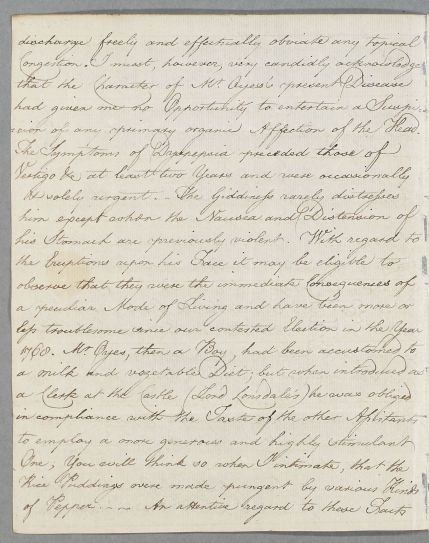 discharge freely and effectually obviate any topical
Congestion. I must, however, very candidly acknowledge
that the Character of Mr. Ayes's present Disease
had given me no Opportunity to entertain a Suspi-
cion of any primary organic Affection of the Head.
The Symptoms of Dyspepsia preceded those of
Vertigo &c at least two Years and were occasionally
solely urgent. _ The Giddiness rarely distresses
him except when the Nausea and Distension of
his Stomach are previously violent. With regard to
the Eruptions upon his Face it may be eligible to
observe that they were the immediate Consequences of
a peculiar Mode of Living and have been more or
less troublesome since our contested Election in the Year
1768. Mr. Ayes, then a Boy, had been accustomed to
a milk and vegetable Diet, but when introduced as
a Clerk at the Castle (Lord Lonsdale's) he was obliged
in compliance with the Taste of the other Assistants
to employ a more generous and highly stimulant
One, You will think so when I intimate, that the
Rice Puddings were made pungent by various Kinds
of Pepper. _ _ An attentive regard to these Facts